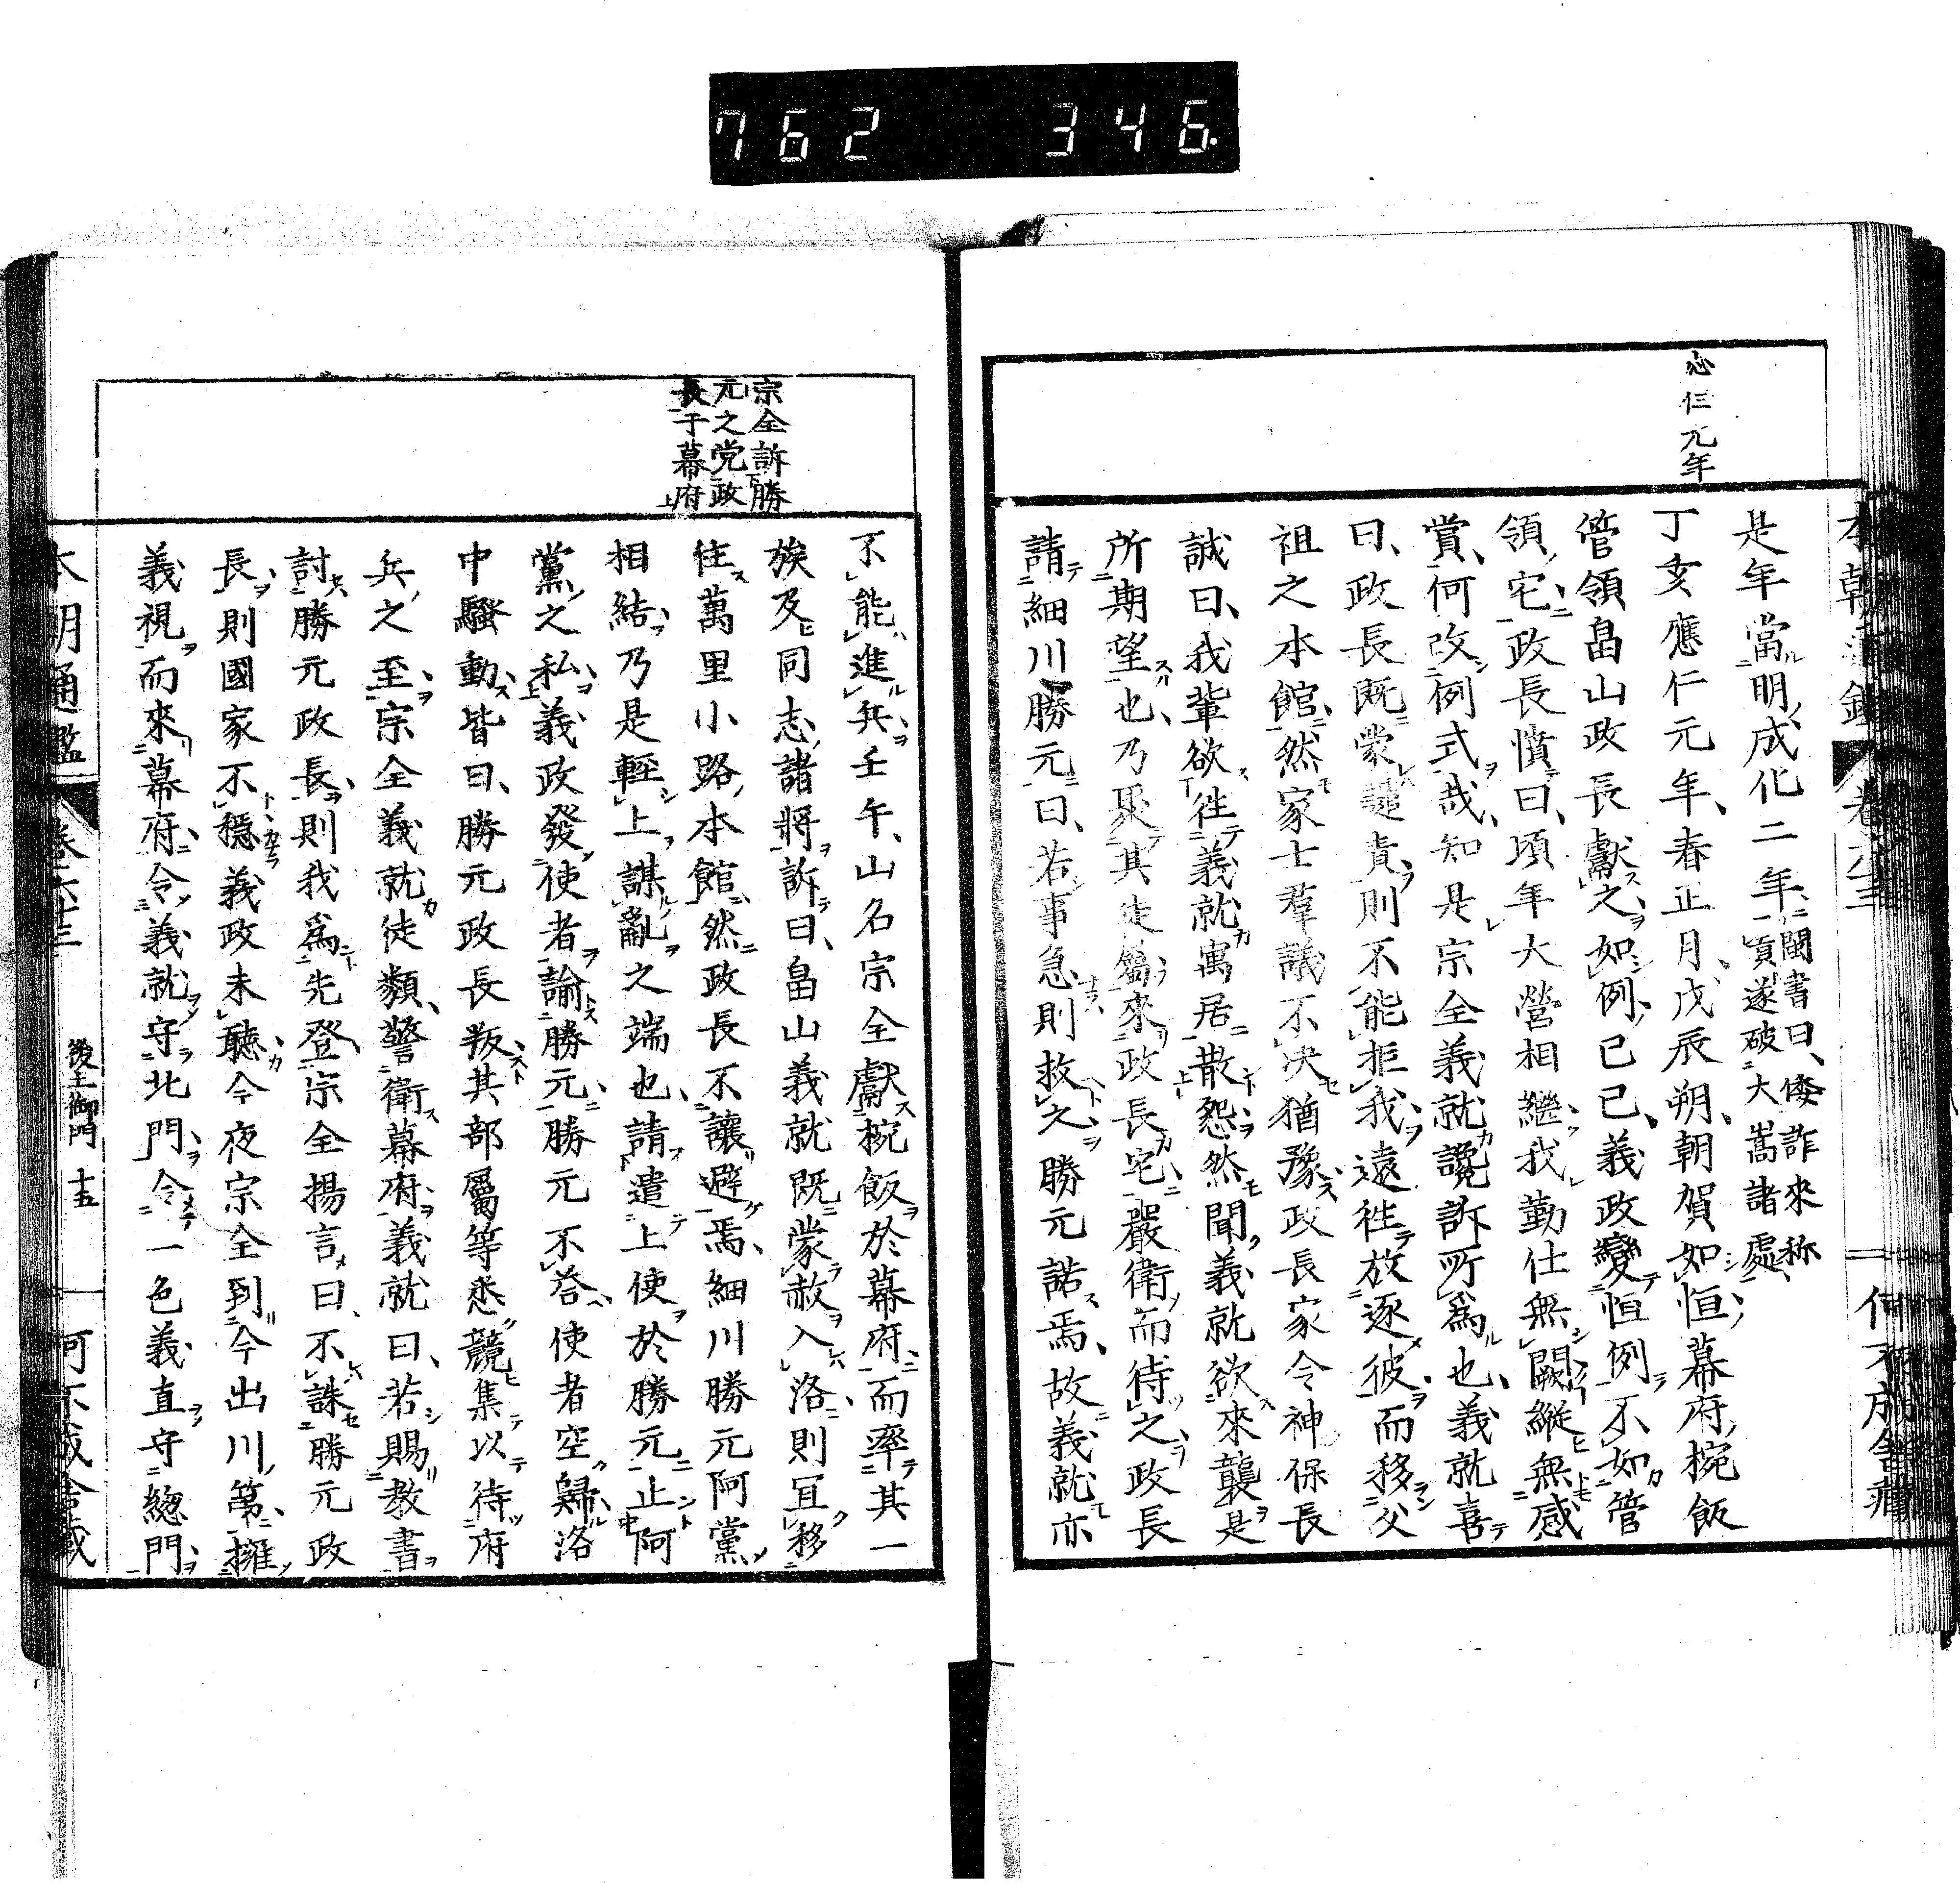 762 346.
應仁元年
是年當明成化二年閩書曰、倭詐來称貢遂破大嵩諸處、
丁亥應仁元年、春正月戊辰朔、朝賀如恒、幕府椀飯
管領畠山政長獻之如例、己巳、義政變恒例不如管
領宅政長憤曰、頃年大營相繼我勤仕無闕縱無感
賞、何改例式哉、知是宗全義就讒訴所爲也、義就喜
曰、政長既蒙譴責、則不能拒我、遠徃放逐彼而移父
祖之本館、然家士羣議不决猶豫、政長家令神保長
誠曰、我輩欲徃義就寓居散怨然聞義就欲來襲是
所期望也、乃聚其徒屬來政長宅嚴衛而待之政長
請細川勝元曰、若事急則救之、勝元諾焉、故義就亦
宗全訴勝
元之党政
長于幕府
不能進兵、壬午、山名宗全獻椀飯於幕府、而率其一
族及同志諸將訴曰、畠山義就既蒙赦入洛、則冝移
徃萬里小路本館、然政長不讓避焉、細川勝元阿黨
相結、乃是輕上謀亂之端也、請遣上使於勝元止阿
黨之私、義政發使者諭勝元、勝元不荅、使者空歸洛
中騷動、皆曰、勝元政長叛其部屬等悉競集以待府
兵之至、宗全義就徒類、警衛幕府、義就曰、若賜教書
討勝元政長、則我爲先登、宗全揚言曰、不誅勝元政
長、則國家不穩義政未聽、今夜宗全到今出川第、擁
義視而來幕府、令義就守北門、令一色義直守總門、
本朝通鑑 卷六十三 後土御門 十五